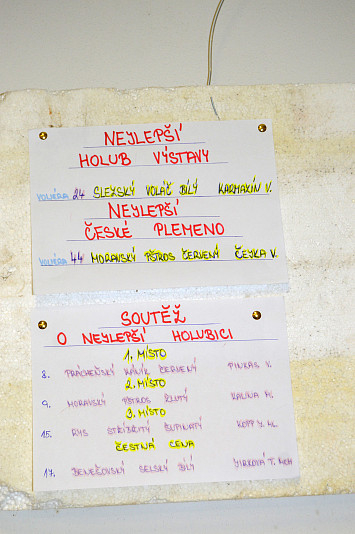 NEJLEPŠÍ
HOLUB VÝSTAVY
VOLIÉRA 24 SLEZSKÝ VOLÁČ BÍLÝ KARMAXÍN V.
NEJLEPŠÍ
ČESKÉ PLEMENO
VOLIÉRA 44 MORAVSKÝ PŠTROS ČERVENÝ ČEJKA V.
SOUTĚŽ
O NEJLEPŠÍ HOLUBICI
1. MÍSTO
8. PRÁCHEŇSKÝ KÁNÍK ČERVENÝ PINKAS V.
2. MÍSTO
9. MORAVSKÝ PŠTROS ŽLUTÝ KALINA M.
3. MÍSTO
15. RYS STŘÍBŘITÝ ŠUPINATÝ KOPP J. ML.
ČESTNÁ CENA
17. BENEŠOVSKÝ SELSKÝ BÍLÝ JIRKOVÁ T.